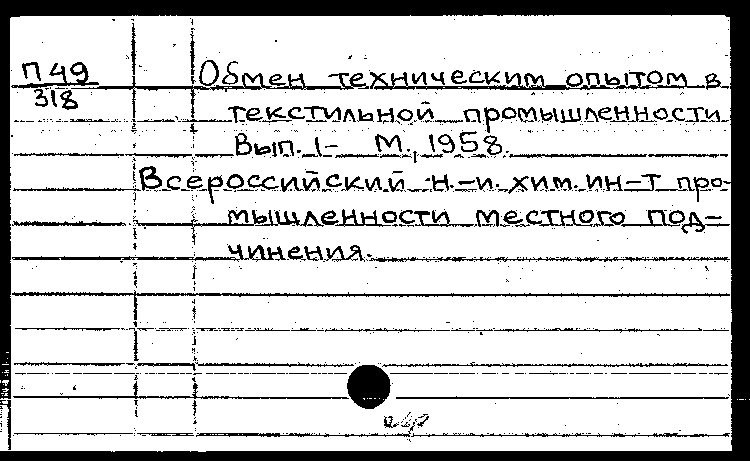 П 49
318
Обмен техническим опытом в
текстильной промышленности
Вып. 1- М., 1958.
Всероссийский н.-и. хим. ин-т про-
мышленности местного под-
чинения.